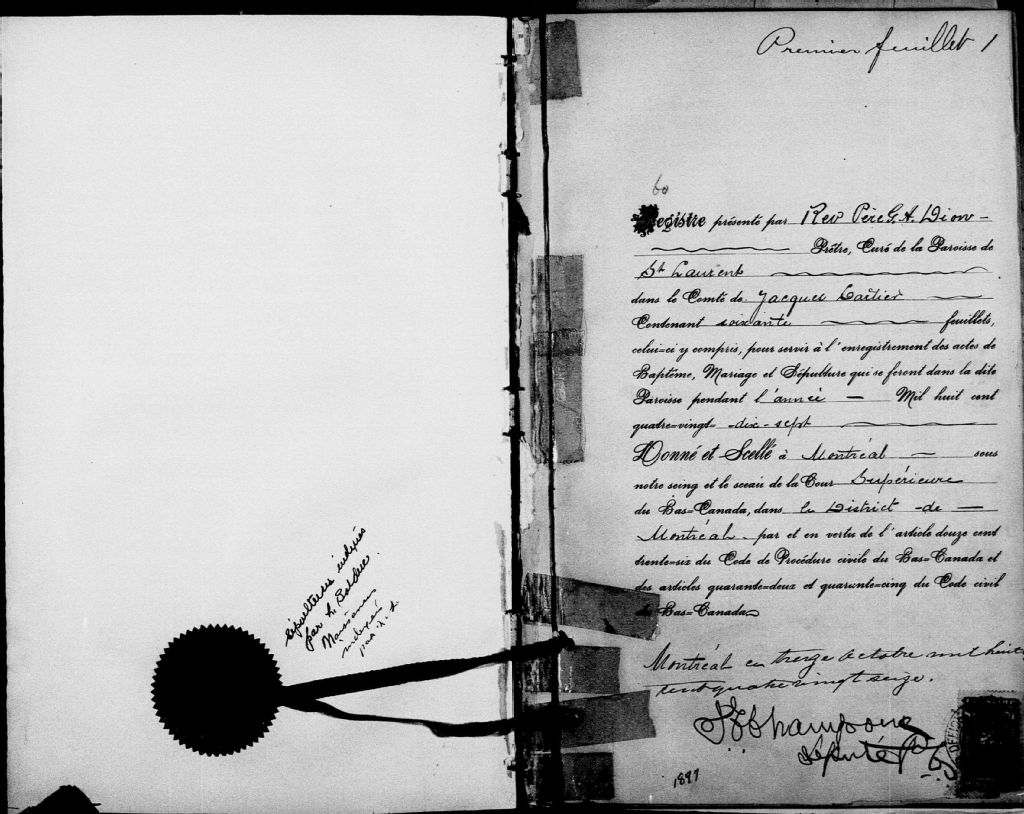 Sépultures indexés
par L. Bolduc.
Naissances
indexés
par L. L.
Premier feuillet 1
60
Registre présenté par Rev Père G. A. Dion
Prêtre, Curé de la Paroisse de
St Laurent
dans le Comté de Jacques Cartier
Contenant soixante feuillets,
celui=ci y compris, pour servir à l'enregistrement des actes de
Baptême, Mariage et Sépulture qui se feront dans la dite
Paroisse pendant l'année — Mil huit cent
quatre=vingt -dix-sept
Donné et Scellé à Montréal — sous
notre seing et le sceau de la Cour Supérieure
du Bas=Canada, dans le District -de —
Montréal - par et en vertu de l'article douze cent
trente=six du Code de Procédure civile du Bas=Canada et
des articles quarante=deux et quarante=cinq du Code civil
du Bas=Canada
Montréal ce treize octobre mil huit
cent quatre vingt seize.
Député P
1897